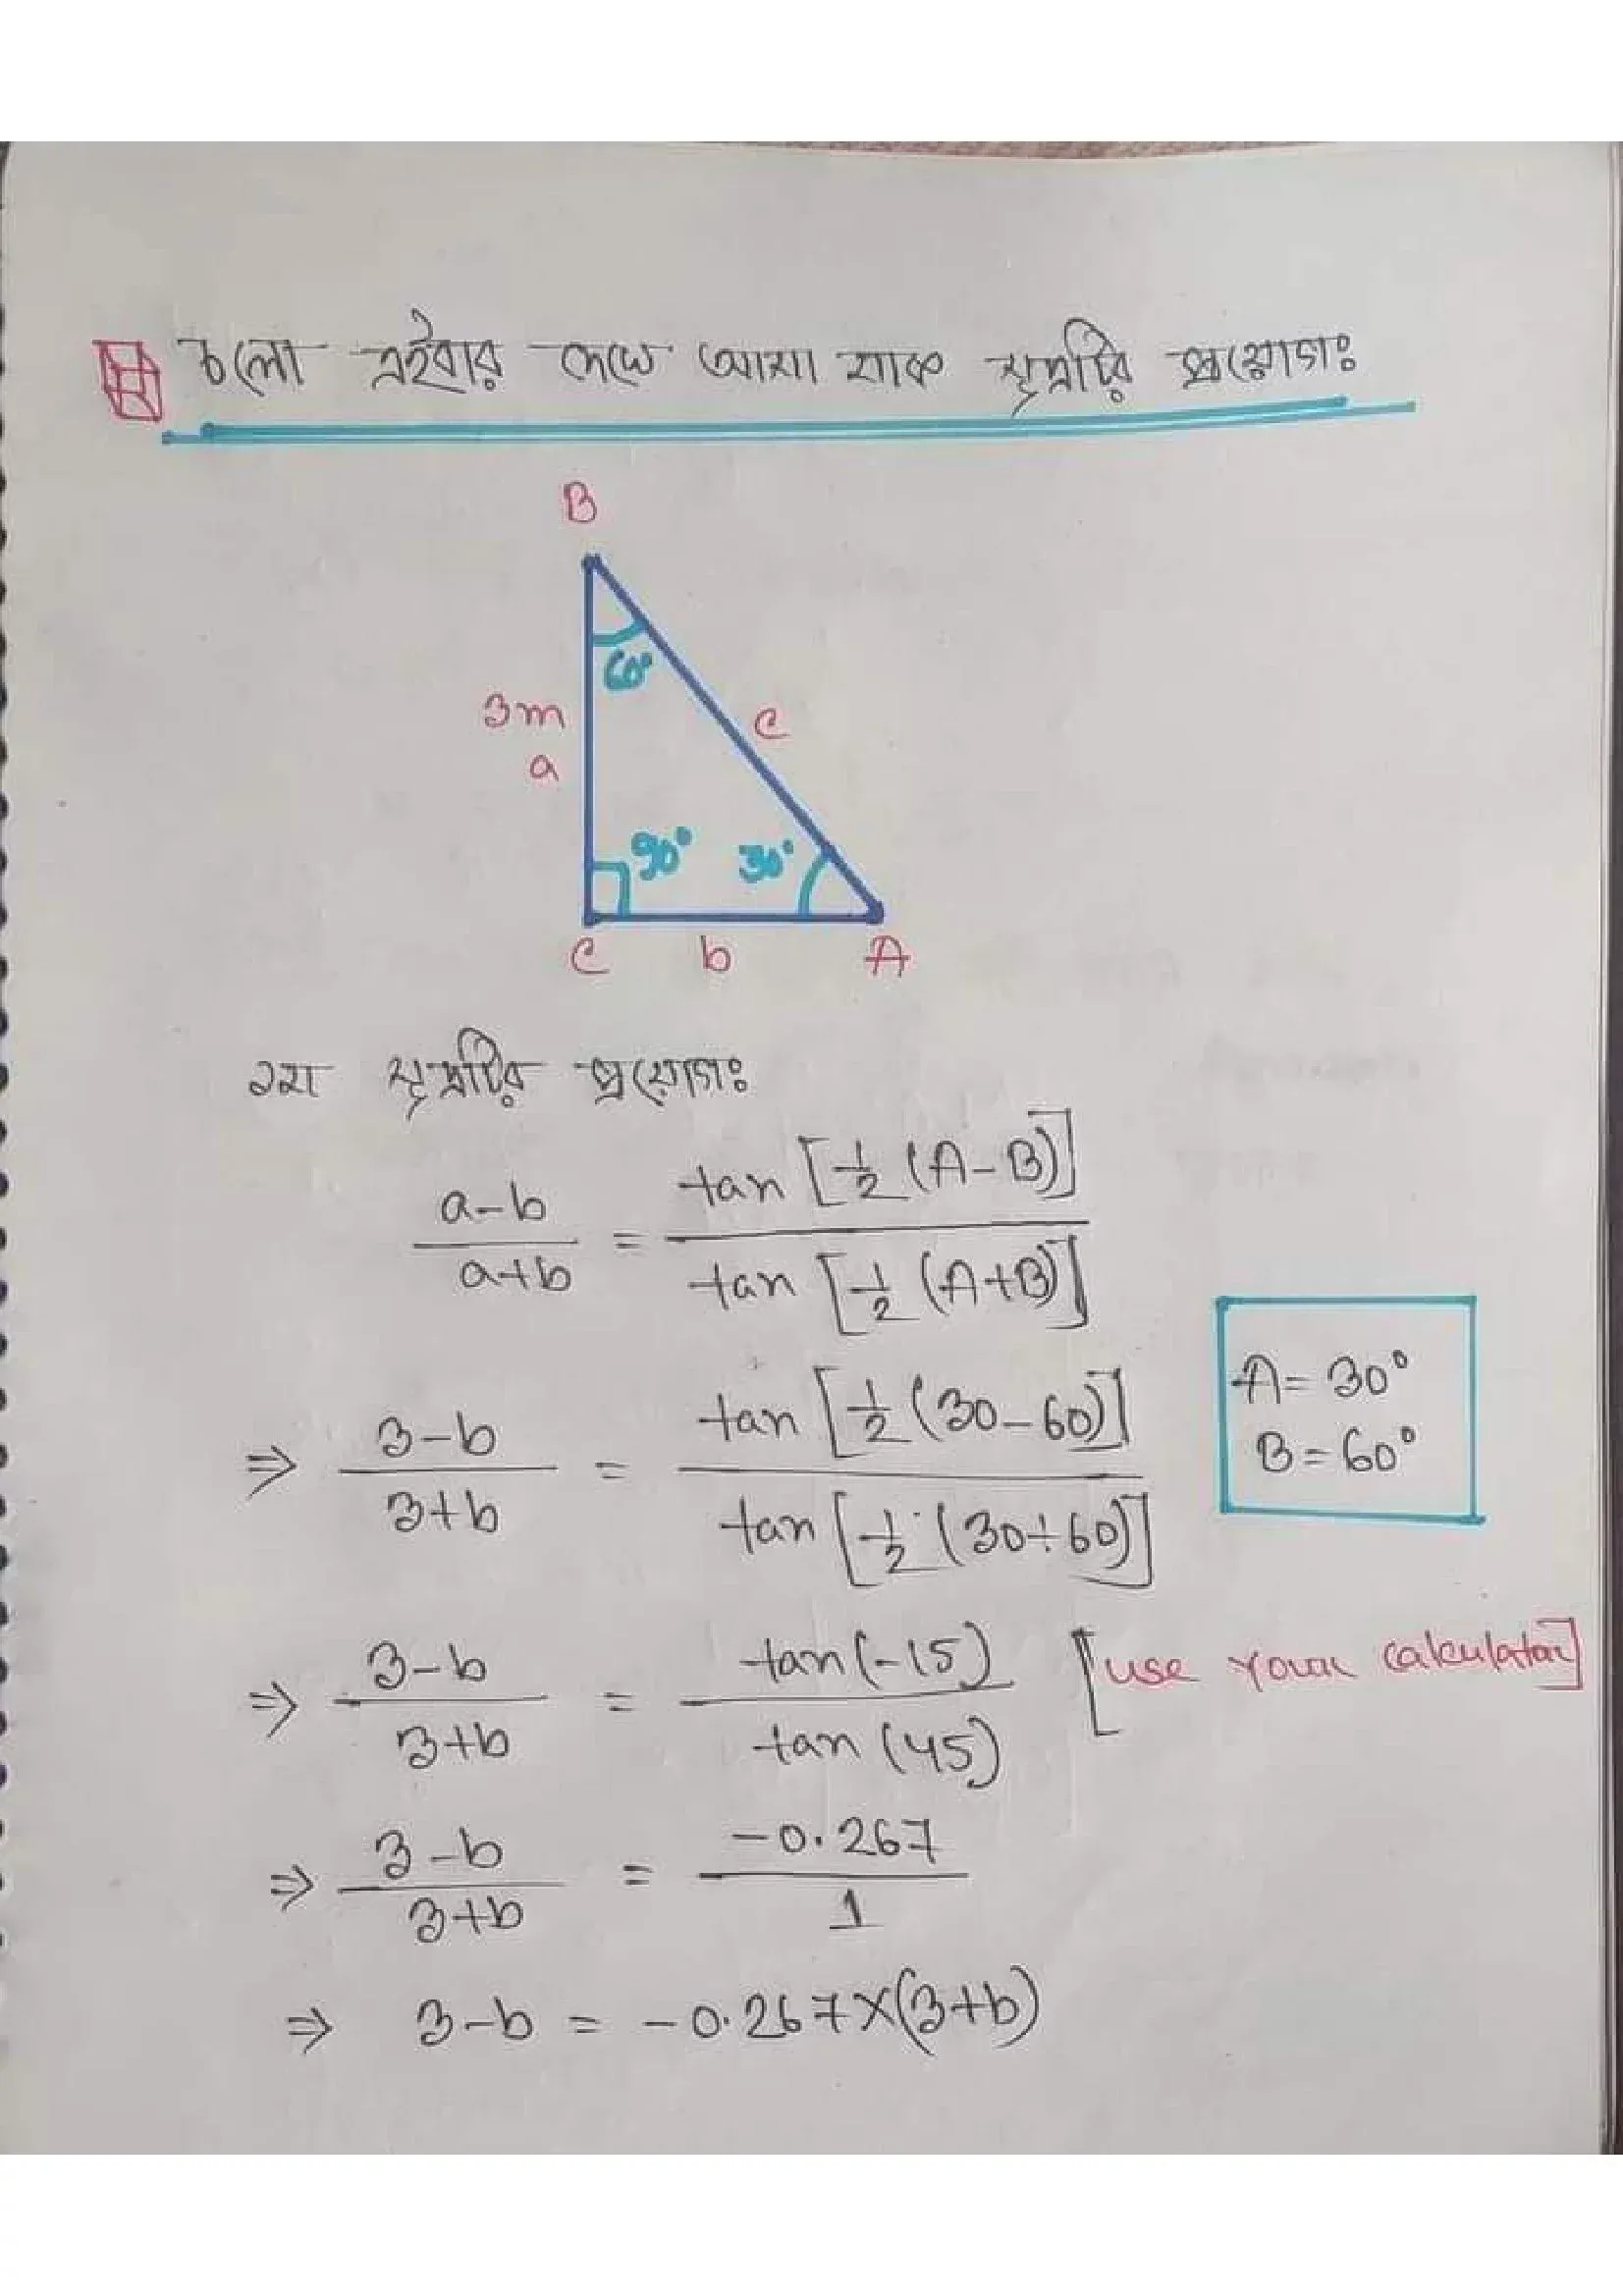 চলো এইবার দেখে আসা যাক সূত্রটির প্রয়োগঃ
B
60°
3m
c
a
90° 30°
C b A
১ম সূত্রটির প্রয়োগঃ
a-b / a+b = tan [1/2 (A-B)] / tan [1/2 (A+B)]
A = 30°
B = 60°
⇒ 3-b / 3+b = tan [1/2 (30-60)] / tan [1/2 (30+60)]
⇒ 3-b / 3+b = tan(-15) / tan (45) [use your calculator]
⇒ 3-b / 3+b = -0.267 / 1
⇒ 3-b = -0.267×(3+b)